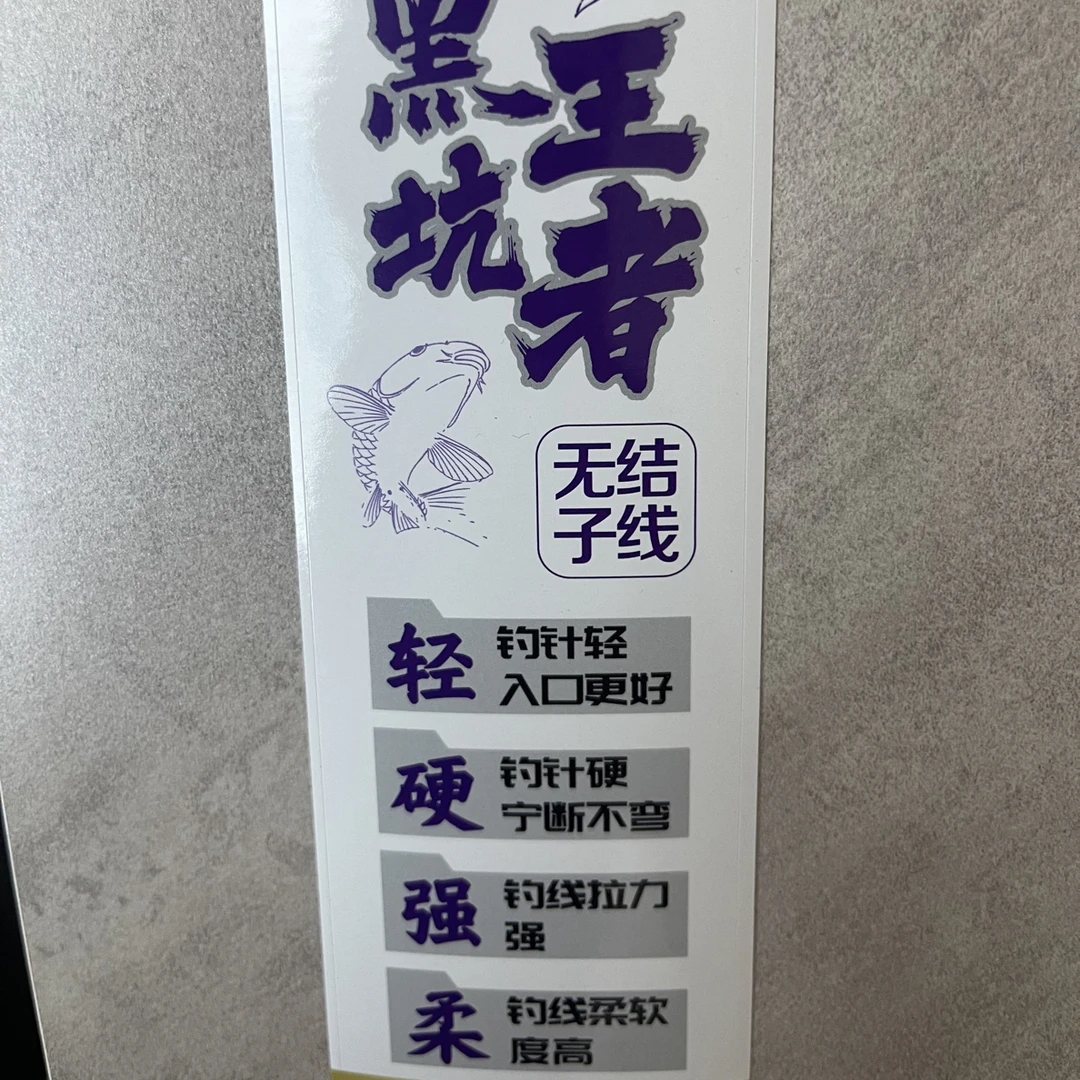 黑坑
王者
无结
子线
轻
钓针轻
入口更好
硬
钓针硬
宁断不弯
强
钓线拉力
强
柔
钓线柔软
度高